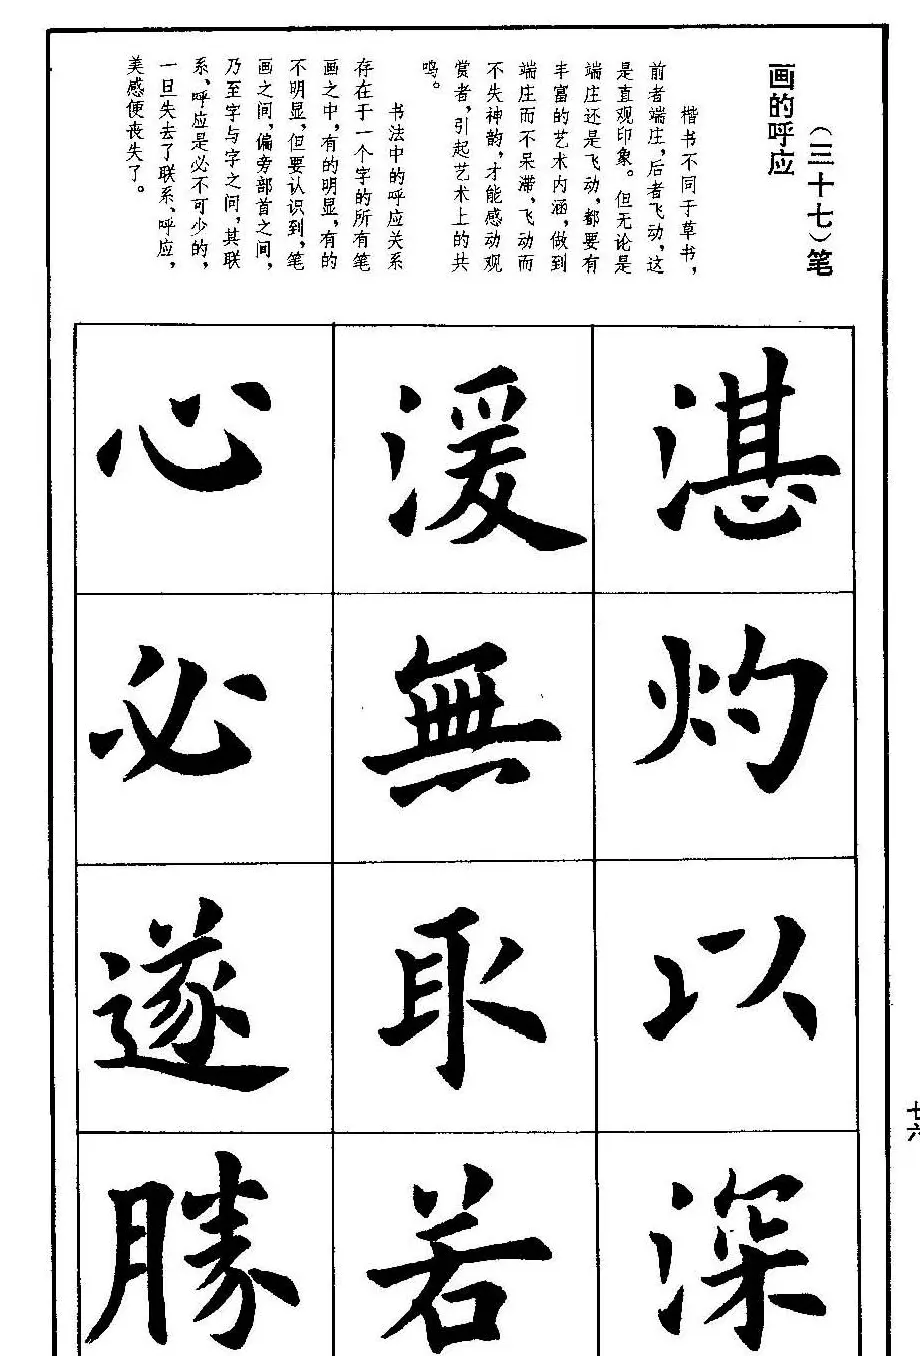 （三十七）笔
画的呼应
楷书不同于草书，
前者端庄，后者飞动，这
是直观印象。但无论是
端庄还是飞动，都要有
丰富的艺术内涵，做到
端庄而不呆滞，飞动而
不失神韵，才能感动观
赏者，引起艺术上的共
鸣。
书法中的呼应关系
存在于一个字的所有笔
画之中，有的明显，有的
不明显，但要认识到，笔
画之间，偏旁部首之间，
乃至字与字之间，其联
系、呼应是必不可少的，
一旦失去了联系、呼应，
美感便丧失了。
湛灼以深
湲無取若
心必遂勝
七六